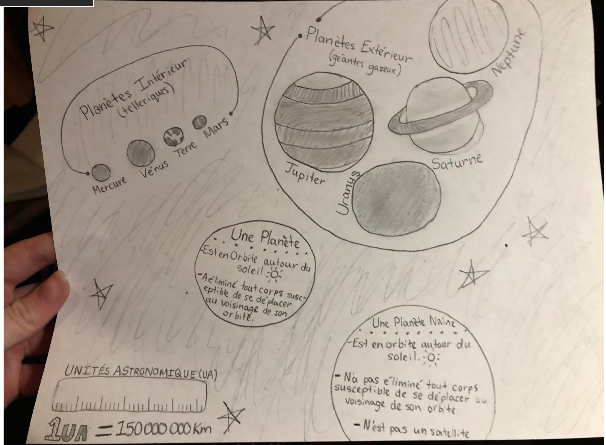 Planètes Intérieur
(télleriques)
Mercure
Vénus
Terre
Mars
Planètes Extérieur
(géantes gazeux)
Neptune
Jupiter
Saturne
Uranus
Une Planète
-Est en Orbite autour du
soleil
-A éliminé tout corps susc-
eptible de se déplacer
au voisinage de son
orbite.
Une Planète Naine
-Est en orbite autour du
soleil.
- N'a pas éliminé tout corps
susceptible de se déplacer au
voisinage de son orbite.
- N'est pas un satellite
UNITÉS ASTRONOMIQUE (UA)
1UA = 150 000 000 Km